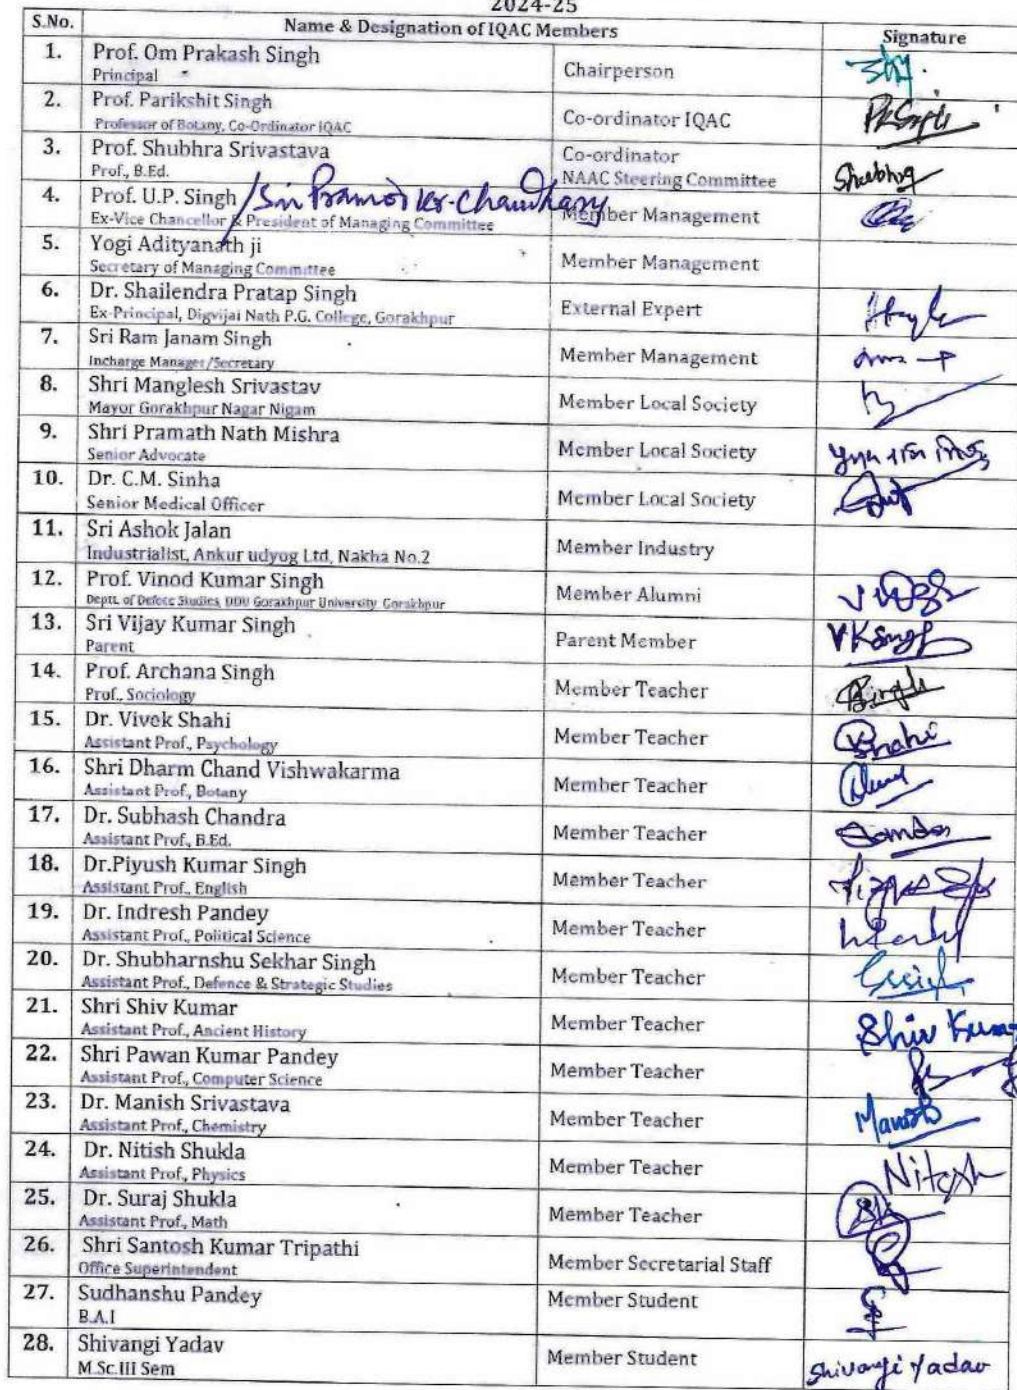 2024-25
S.No. Name & Designation of IQAC Members Signature
1. Prof. Om Prakash Singh
Principal
Chairperson
2. Prof. Parikshit Singh
Professor of Botany, Co-Ordinator IQAC
Co-ordinator IQAC
3. Prof. Shubhra Srivastava
Prof., B.Ed.
Co-ordinator
NAAC Steering Committee
Shubhra
4. Prof. U.P. Singh /Sri Pramod Kr. Chaudhary
Ex-Vice Chancellor & President of Managing Committee
Member Management
5. Yogi Adityanath ji
Secretary of Managing Committee
Member Management
6. Dr. Shailendra Pratap Singh
Ex-Principal, Digvijai Nath P.G. College, Gorakhpur
External Expert
7. Sri Ram Janam Singh
Incharge Manager/Secretary
Member Management
8. Shri Manglesh Srivastav
Mayor Gorakhpur Nagar Nigam
Member Local Society
9. Shri Pramath Nath Mishra
Senior Advocate
Member Local Society
10. Dr. C.M. Sinha
Senior Medical Officer
Member Local Society
11. Sri Ashok Jalan
Industrialist, Ankur udyog Ltd, Nakha No.2
Member Industry
12. Prof. Vinod Kumar Singh
Deptt. of Defece Studies, DDU Gorakhpur University Gorakhpur
Member Alumni
13. Sri Vijay Kumar Singh
Parent
Parent Member
VKSingh
14. Prof. Archana Singh
Prof., Sociology
Member Teacher
15. Dr. Vivek Shahi
Assistant Prof., Psychology
Member Teacher
16. Shri Dharm Chand Vishwakarma
Assistant Prof., Botany
Member Teacher
17. Dr. Subhash Chandra
Assistant Prof., B.Ed.
Member Teacher
18. Dr.Piyush Kumar Singh
Assistant Prof., English
Member Teacher
19. Dr. Indresh Pandey
Assistant Prof., Political Science
Member Teacher
20. Dr. Shubharnshu Sekhar Singh
Assistant Prof., Defence & Strategic Studies
Member Teacher
21. Shri Shiv Kumar
Assistant Prof., Ancient History
Member Teacher
Shiv Kumar
22. Shri Pawan Kumar Pandey
Assistant Prof., Computer Science
Member Teacher
23. Dr. Manish Srivastava
Assistant Prof., Chemistry
Member Teacher
Manish
24. Dr. Nitish Shukla
Assistant Prof., Physics
Member Teacher
Nitish
25. Dr. Suraj Shukla
Assistant Prof., Math
Member Teacher
26. Shri Santosh Kumar Tripathi
Office Superintendent
Member Secretarial Staff
27. Sudhanshu Pandey
B.A.I
Member Student
28. Shivangi Yadav
M.Sc.III Sem
Member Student
Shivangi Yadav